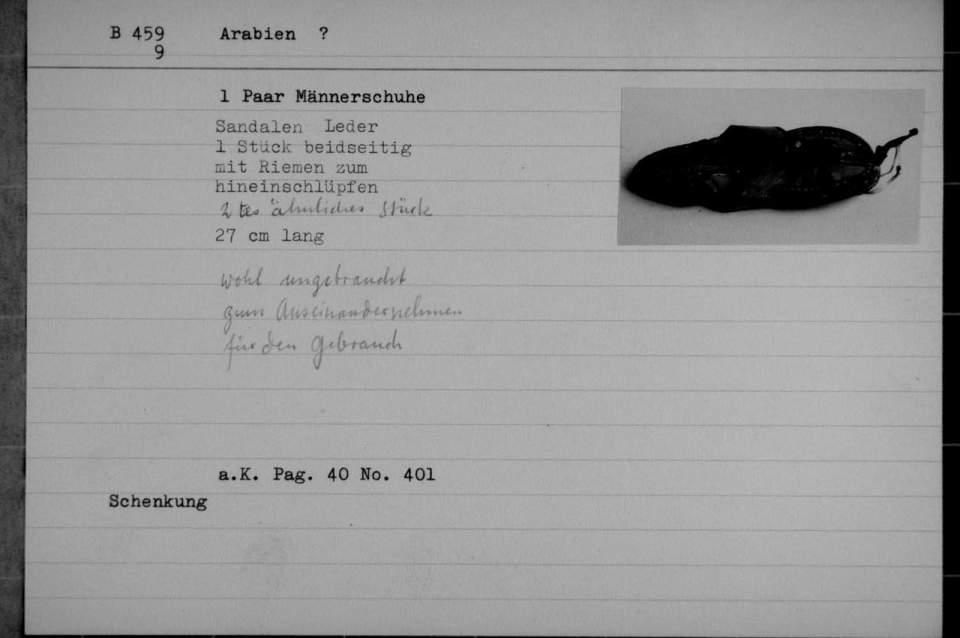 B 459 Arabien ?
9
1 Paar Männerschuhe
Sandalen Leder
1 Stück beidseitig
mit Riemen zum
hineinschlüpfen
2 tes ähnliches Stück
27 cm lang
wohl ungebraucht
zum Auseinandernehmen
für den Gebrauch
a.K. Pag. 40 No. 401
Schenkung